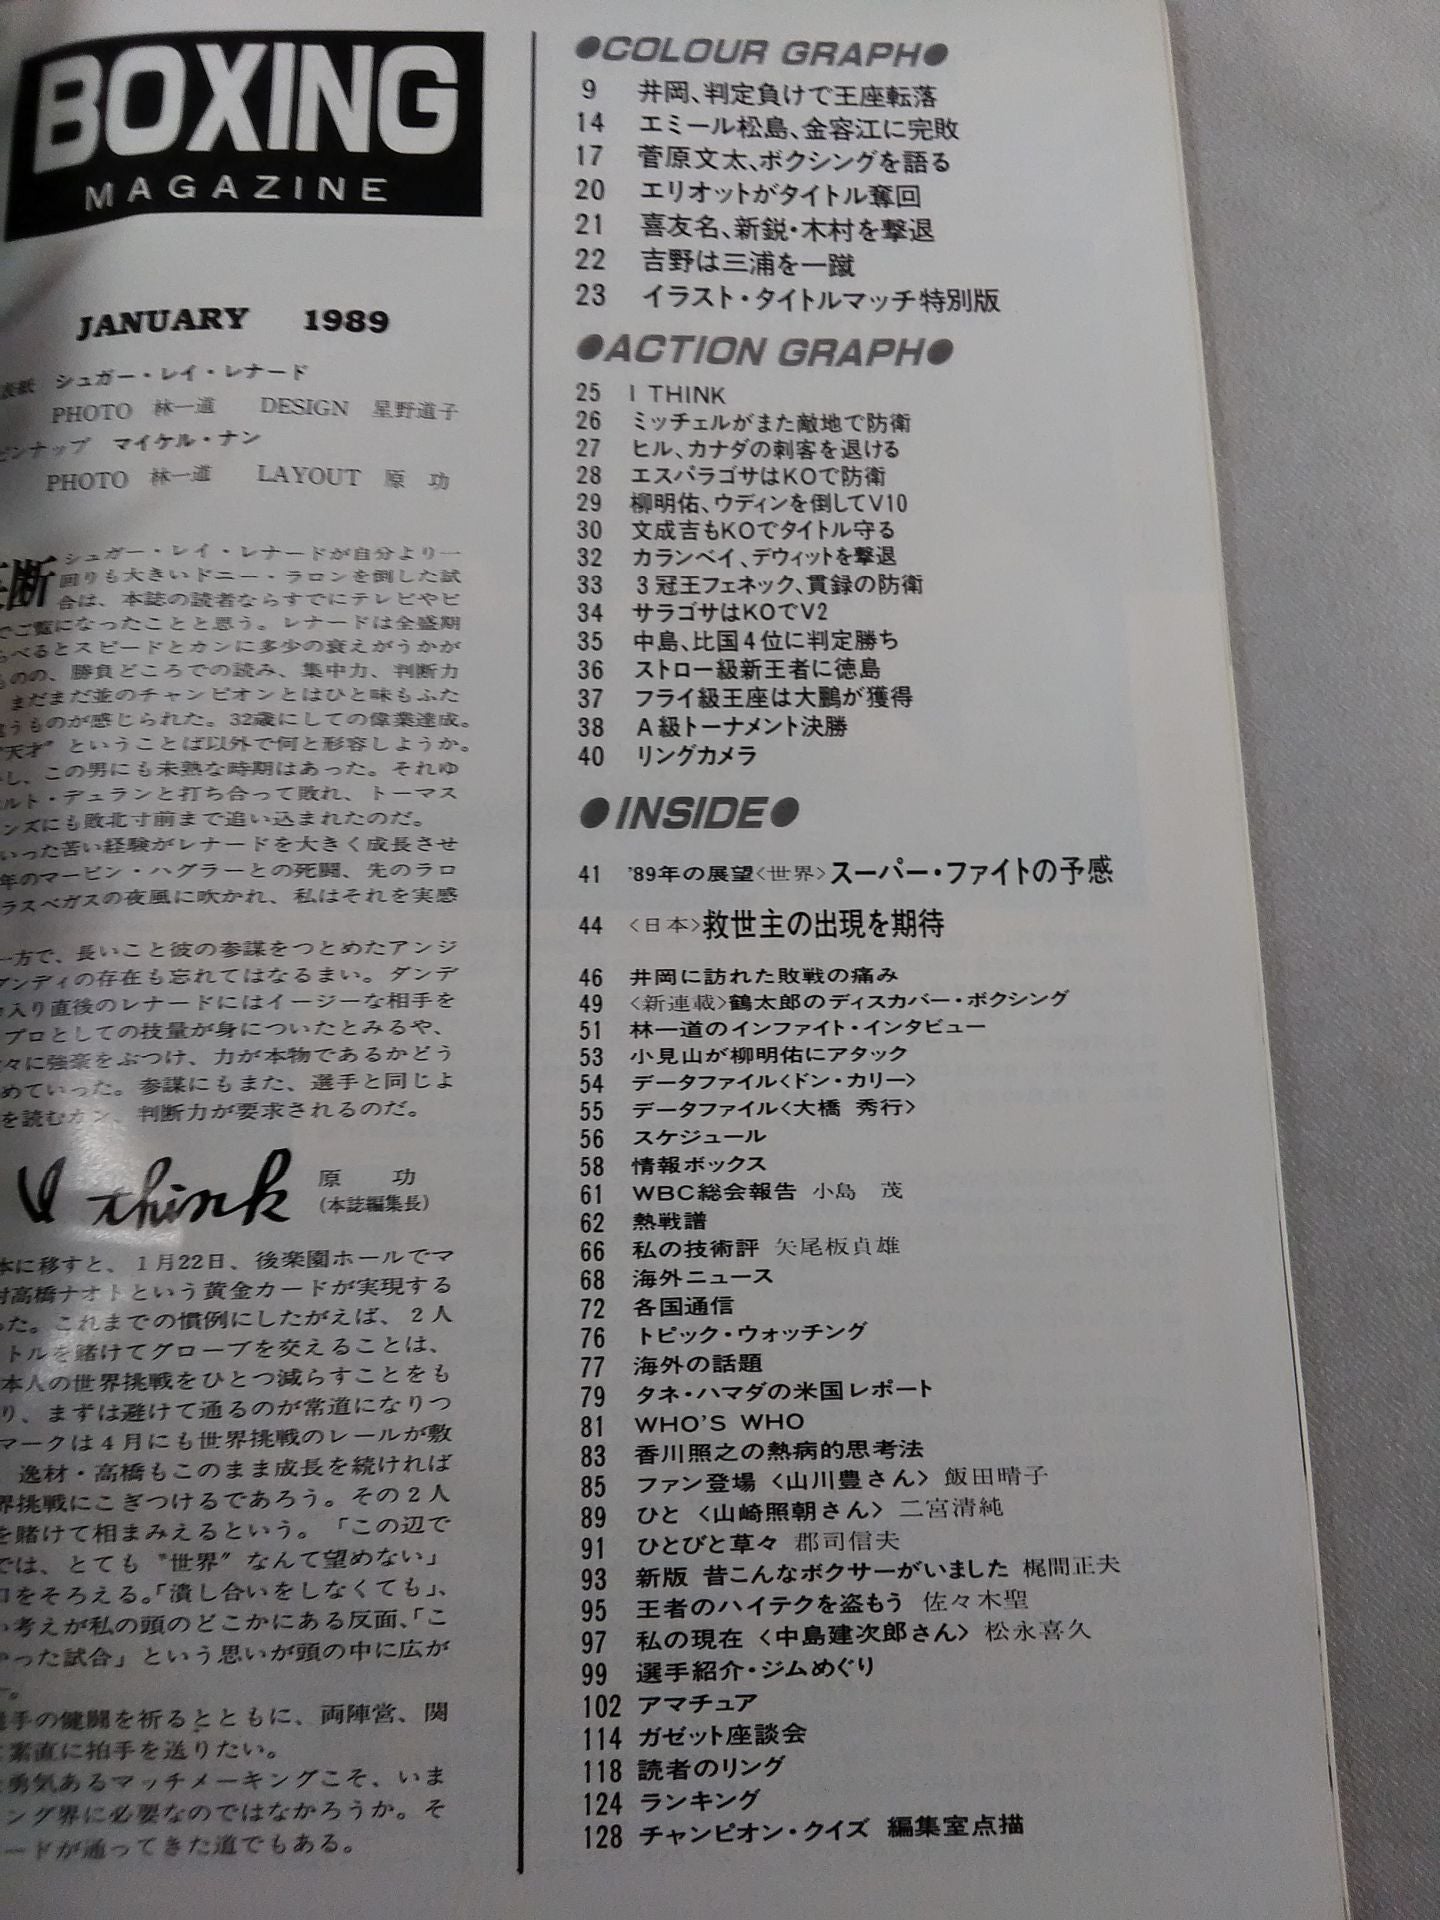 BOXING
MAGAZINE
JANUARY 1989
表紙 シュガー・レイ・レナード
PHOTO 林一道 DESIGN 星野道子
ピンナップ マイケル・ナン
PHOTO 林一道 LAYOUT 原 功
断
シュガー・レイ・レナードが自分より一
回りも大きいドニー・ラロンを倒した試
合は、本誌の読者ならすでにテレビやビ
でご覧になったことと思う。レナードは全盛期
べるとスピードとカンに多少の衰えがうかが
ものの、勝負どころでの読み、集中力、判断力
まだまだ並のチャンピオンとはひと味もふた
違うものが感じられた。32歳にしての偉業達成。
"天才"ということば以外で何と形容しようか。
し、この男にも未熟な時期はあった。それゆ
ルト・デュランと打ち合って敗れ、トーマス
ンズにも敗北寸前まで追い込まれたのだ。
いった苦い経験がレナードを大きく成長させ
年のマービン・ハグラーとの死闘、先のラロ
ラスベガスの夜風に吹かれ、私はそれを実感
一方で、長いこと彼の参謀をつとめたアンジ
ダンディの存在も忘れてはなるまい。ダンデ
入り直後のレナードにはイージーな相手を
プロとしての技量が身についたとみるや、
々に強豪をぶつけ、力が本物であるかどう
めていった。参謀にもまた、選手と同じよ
を読むカン、判断力が要求されるのだ。
I think 原 功
(本誌編集長)
本に移すと、1月22日、後楽園ホールでマ
対高橋ナオトという黄金カードが実現する
った。これまでの慣例にしたがえば、2人
トルを賭けてグローブを交えることは、
本人の世界挑戦をひとつ減らすことをも
り、まずは避けて通るのが常道になりつ
マークは4月にも世界挑戦のレールが敷
逸材・高橋もこのまま成長を続ければ
界挑戦にこぎつけるであろう。その2人
を賭けて相まみえるという。「この辺で
では、とても"世界"なんて望めない」
口をそろえる。「潰し合いをしなくても」、
い考えが私の頭のどこかにある反面、「こ
かった試合」という思いが頭の中に広が
。
選手の健闘を祈るとともに、両陣営、関
に素直に拍手を送りたい。
勇気あるマッチメーキングこそ、いま
ング界に必要なのではなかろうか。そ
ードが通ってきた道でもある。
●COLOUR GRAPH●
9 井岡、判定負けで王座転落
14 エミール松島、金容江に完敗
17 菅原文太、ボクシングを語る
20 エリオットがタイトル奪回
21 喜友名、新鋭・木村を撃退
22 吉野は三浦を一蹴
23 イラスト・タイトルマッチ特別版
●ACTION GRAPH●
25 I THINK
26 ミッチェルがまた敵地で防衛
27 ヒル、カナダの刺客を退ける
28 エスパラゴサはKOで防衛
29 柳明佑、ウディンを倒してV10
30 文成吉もKOでタイトル守る
32 カランベイ、デウィットを撃退
33 3冠王フェネック、貫録の防衛
34 サラゴサはKOでV2
35 中島、比国4位に判定勝ち
36 ストロー級新王者に徳島
37 フライ級王座は大鵬が獲得
38 A級トーナメント決勝
40 リングカメラ
●INSIDE●
41 '89年の展望〈世界〉スーパー・ファイトの予感
44 〈日本〉救世主の出現を期待
46 井岡に訪れた敗戦の痛み
49 〈新連載〉鶴太郎のディスカバー・ボクシング
51 林一道のインファイト・インタビュー
53 小見山が柳明佑にアタック
54 データファイル〈ドン・カリー〉
55 データファイル〈大橋 秀行〉
56 スケジュール
58 情報ボックス
61 WBC総会報告 小島 茂
62 熱戦譜
66 私の技術評 矢尾板貞雄
68 海外ニュース
72 各国通信
76 トピック・ウォッチング
77 海外の話題
79 タネ・ハマダの米国レポート
81 WHO'S WHO
83 香川照之の熱病的思考法
85 ファン登場〈山川豊さん〉飯田晴子
89 ひと〈山崎照朝さん〉二宮清純
91 ひとびと草々 郡司信夫
93 新版 昔こんなボクサーがいました 梶間正夫
95 王者のハイテクを盗もう 佐々木聖
97 私の現在〈中島建次郎さん〉松永喜久
99 選手紹介・ジムめぐり
102 アマチュア
114 ガゼット座談会
118 読者のリング
124 ランキング
128 チャンピオン・クイズ 編集室点描